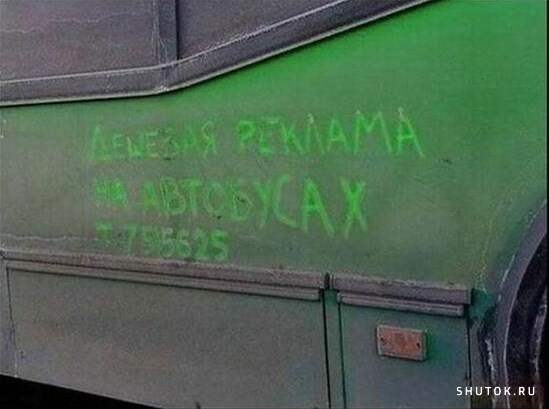 ДЕШЕВАЯ РЕКЛАМА
НА АВТОБУСАХ
Т. 795625
SHUTOK.RU